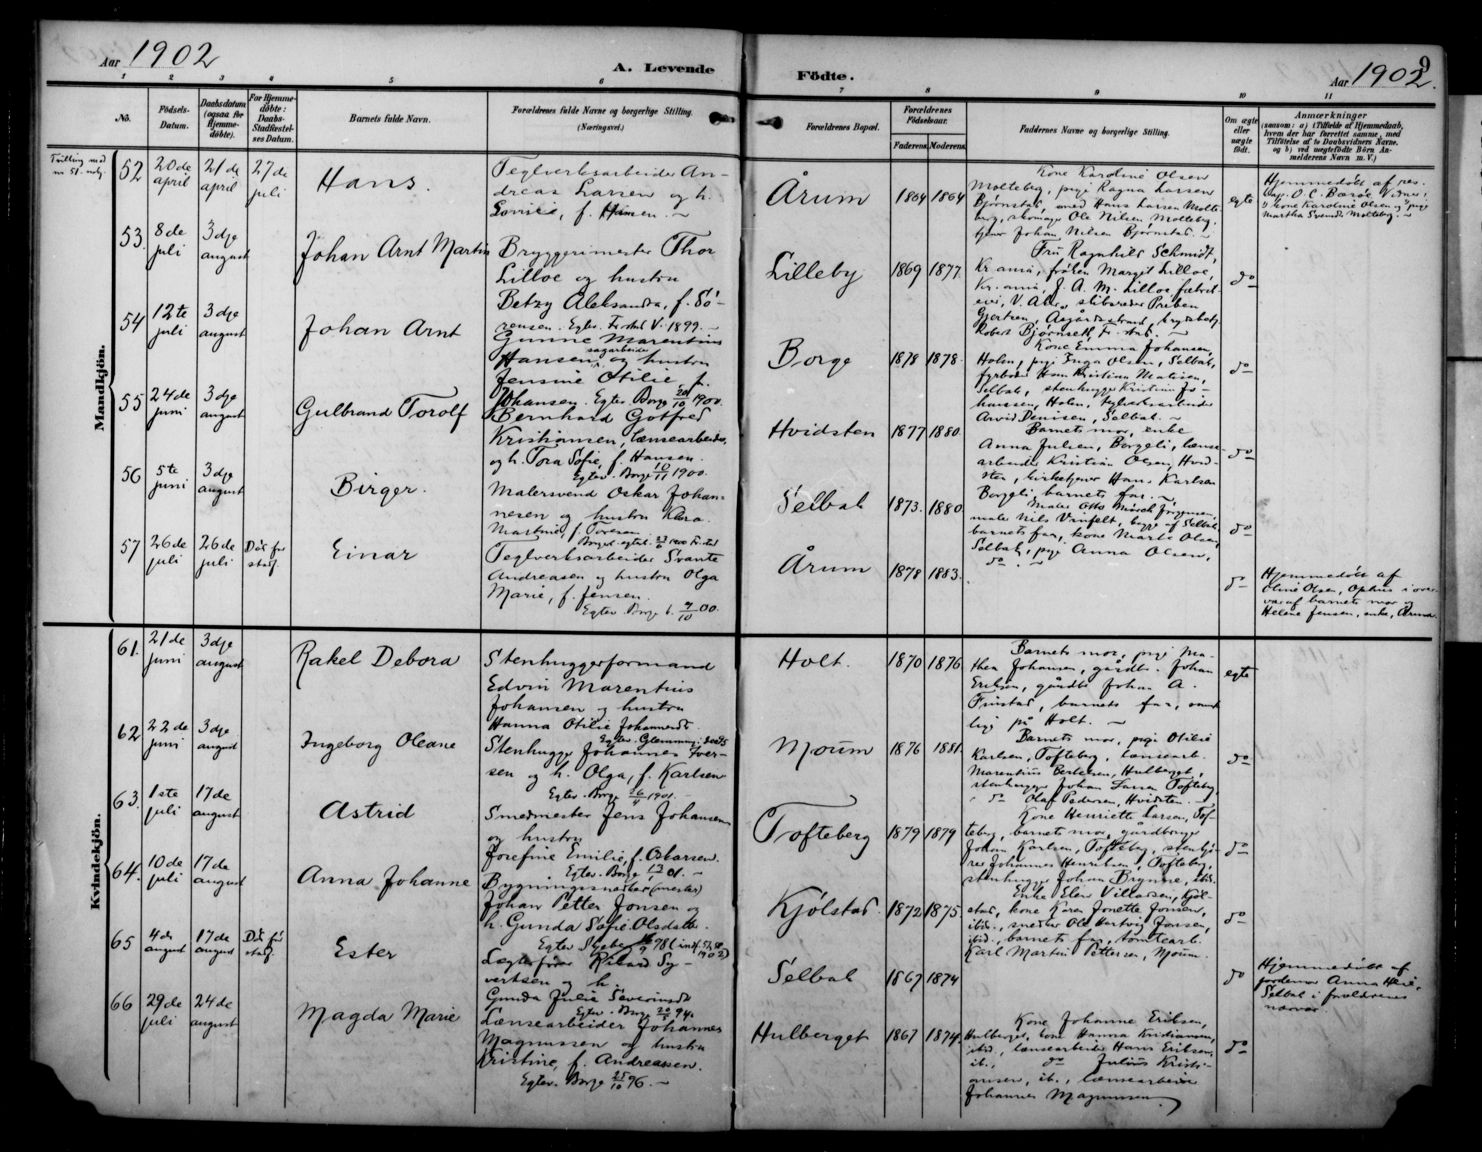 Aar 1902
A. Levende Födte.
Aar 1902.
9
1 2 3 4 5 6 7 8 9 10 11
No.
Födsels-
Datum.
Daabsdatum
(ogsaa for
Hjemme-
døbte).
For Hjemme-
døbte:
Daabs-
Stadfæstel-
ses Datum.
Barnets fulde Navn.
Forældrenes fulde Navne og borgerlige Stilling.
(Næringsvei.)
Forældrenes Bopæl.
Forældrenes
Födselsaar.
Faderens.
Moderens.
Faddernes Navne og borgerlige Stilling.
Om ægte
eller
uægte
født.
Anmærkninger
(saasom: a) i Tilfælde af Hjemmedaab,
hvem der har forrettet samme, med
Tilføielse af to Daabsvidners Navne.
og b) ved uægtefödte Börn An-
melderens Navn m. V.)
Mandkjön.
Tvilling med
52
20de
april
21de
april
27de
juli
Hans.
Teglverksarbeider An-
dreas Larsen og h.
Lovise, f. Hansen.
Årum
1864
egte
Kone Karoline Olsen
Molteberg, pige Ragna Larsen
Bjørnstad, und Hans Larsen Molte-
berg, skomager Ole Nilsen Molteberg,
tjener Johan Nilsen Bjørnstad.
Hjemmedøbt af
kone Karoline Olsen og pige
Martha Svendsd. Molteberg.
53.
8de
juli
3dje
august
Johan Arnt Martin
Bryggerimester Thor
Lilloe og hustru
Betzy Aleksandra, f. Sö-
rensen. Egtev. Fr.stad V. 1899.
Lilleby
1869
1877
do
Fru Ragnhild Schmidt,
Kr.ania, frøken Margit Lilloe,
Kr.ania, J. A. M. Lilloe fabrik-
eier, V. Aker, skibsreder Preben
Gjertsen, Aasgårdstrand,
Robert Bjørnseth, Fr.stad.
54
12te
juli
3dje
august
Johan Arnt
Gunne Marentius
Hansen sagarbeider og hustru
Jensine Otilie, f.
Johansen. Egtev. Borge 20/10 1900.
Borge
1878
1878
do
Kone Emma Johansen,
Holen, pige Inga Olsen, Selbak,
fyrbøder Hans Kristian Matisen,
Selbak, stenhugger Kristian Jo-
hanssen, Holen, teglverksarbeider
Arvid Denisen, Selbak.
55
24de
juni
3dje
august
Gulbrand Torolf
Bernhard Gotfred
Kristiansen, lænsearbeider,
og h. Tora Sofie, f. Hansen.
Egtev. Borge 10/11 1900.
Hvidsten
1877
1880
do
Barnets mor, enke
Anna Julsen, Borgeli, lænse-
arbeider Kristian Olsen, Hvid-
sten, kirketjener Hans Karlsen
Borgeli, barnets far.
56
5te
juni
3dje
august
Birger.
Malersvend Oskar Johan-
nesen og hustru Klara
Martine, f. Toresen.
Selbak
1873.
1880
do
Maler Otto Münch Jørgensen,
maler Nils Vinfelt, begge af Selbak,
barnets far, kone Marte Olsen,
Selbak, pige Anna Olsen,
do.
57
26de
juli
26de
juli
Død før
stadf.
Einar
Teglverksarbeider Svante
Andreasen og hustru Olga
Marie, f. Jensen.
Egtev. Borge k. 7/10 00.
Årum
1878
1883.
do
Hjemmedøbt af
Oline Olsen, Ophus i over-
vær af barnets mor og
Helene Jensen, enke, Årum.
Kvindekjön.
61.
21de
juni
3dje
august
Rakel Debora
Stenhuggerformand
Edvin Marentius
Johansen og hustru
Hanna Otilie Johannesd.
Holt.
1870
1876
egte
Barnets mor, pige Ma-
thea Johansen, gårdbr. Johan
Eriksen, gårdbr Johan A.
Finstad, barnets far, samt-
lige på Holt.
62
22de
juni
3dje
august
Ingeborg Oleane
Stenhugger Johannes Iver-
sen og h. Olga, f. Karlsen
Egtev. Borge 26/4 1901.
Moum
1876
1881.
do
Barnets mor, pige Otilie
Karlsen, Tofteberg, lænsearb.
Marentius Bertelsen, Hulberget,
stenhugger Johan Larsen Tofteberg,
do Olaf Pedersen, Hvidsten.
63.
1ste
juli
17de
august
Astrid
Smedmester Jens Johansen
og hustru
Josefine Emilie, f. Oskarsen.
Egtev. Borge 13/1 01.
Tofteberg
1879
1879
do
Kone Henriette Larsen, Tof-
teberg, barnets mor, gårdborger
Johan Karlsen, Tofteberg, stenkjø-
rer Johannes Henriksen, Tofteberg,
stenhugger Johan Brynne, ibid.
64.
10de
juli
17de
august
Anna Johanne
Bygningssnedker(mester)
Johan Petter Jonsen og
h. Gunda Sofie Olsdatter.
Kjølstad.
1872
1875
do
Enke Elen Villadsen, Kjøl-
stad, kone Karen Jonette Jonsen,
ibid., snedker Ole Hartvig Jonsen,
ibid., barnets far, tomtearb.
Karl Martin Pettersen, Moum.
65
4de
august
17de
august
Død før
stadf.
Ester
Lægterfører Rikard Sy-
vertsen og h.
Gunda Julie Severinsd.
Egtev. Borge 20/5 94.
Selbak
1867
1874
do
Hjemmedøbt af
jordemor Anna
Selbak i forældrenes
nærvær.
66
29de
juli
24de
august
Magda Marie
Lænsearbeider Johannes
Magnussen og hustru
Kristine, f. Andreassen.
Egtev. Borge 25/10 96.
Hulberget
1867
1874.
do
Kone Johanne Eriksen,
Hulberget, kone Hanna Kristiansen,
ibid., lænsearbeider Hans Eriksen,
ib., do Julius Kristi-
ansen, ib., lænsearbeider
Johannes Magnussen.